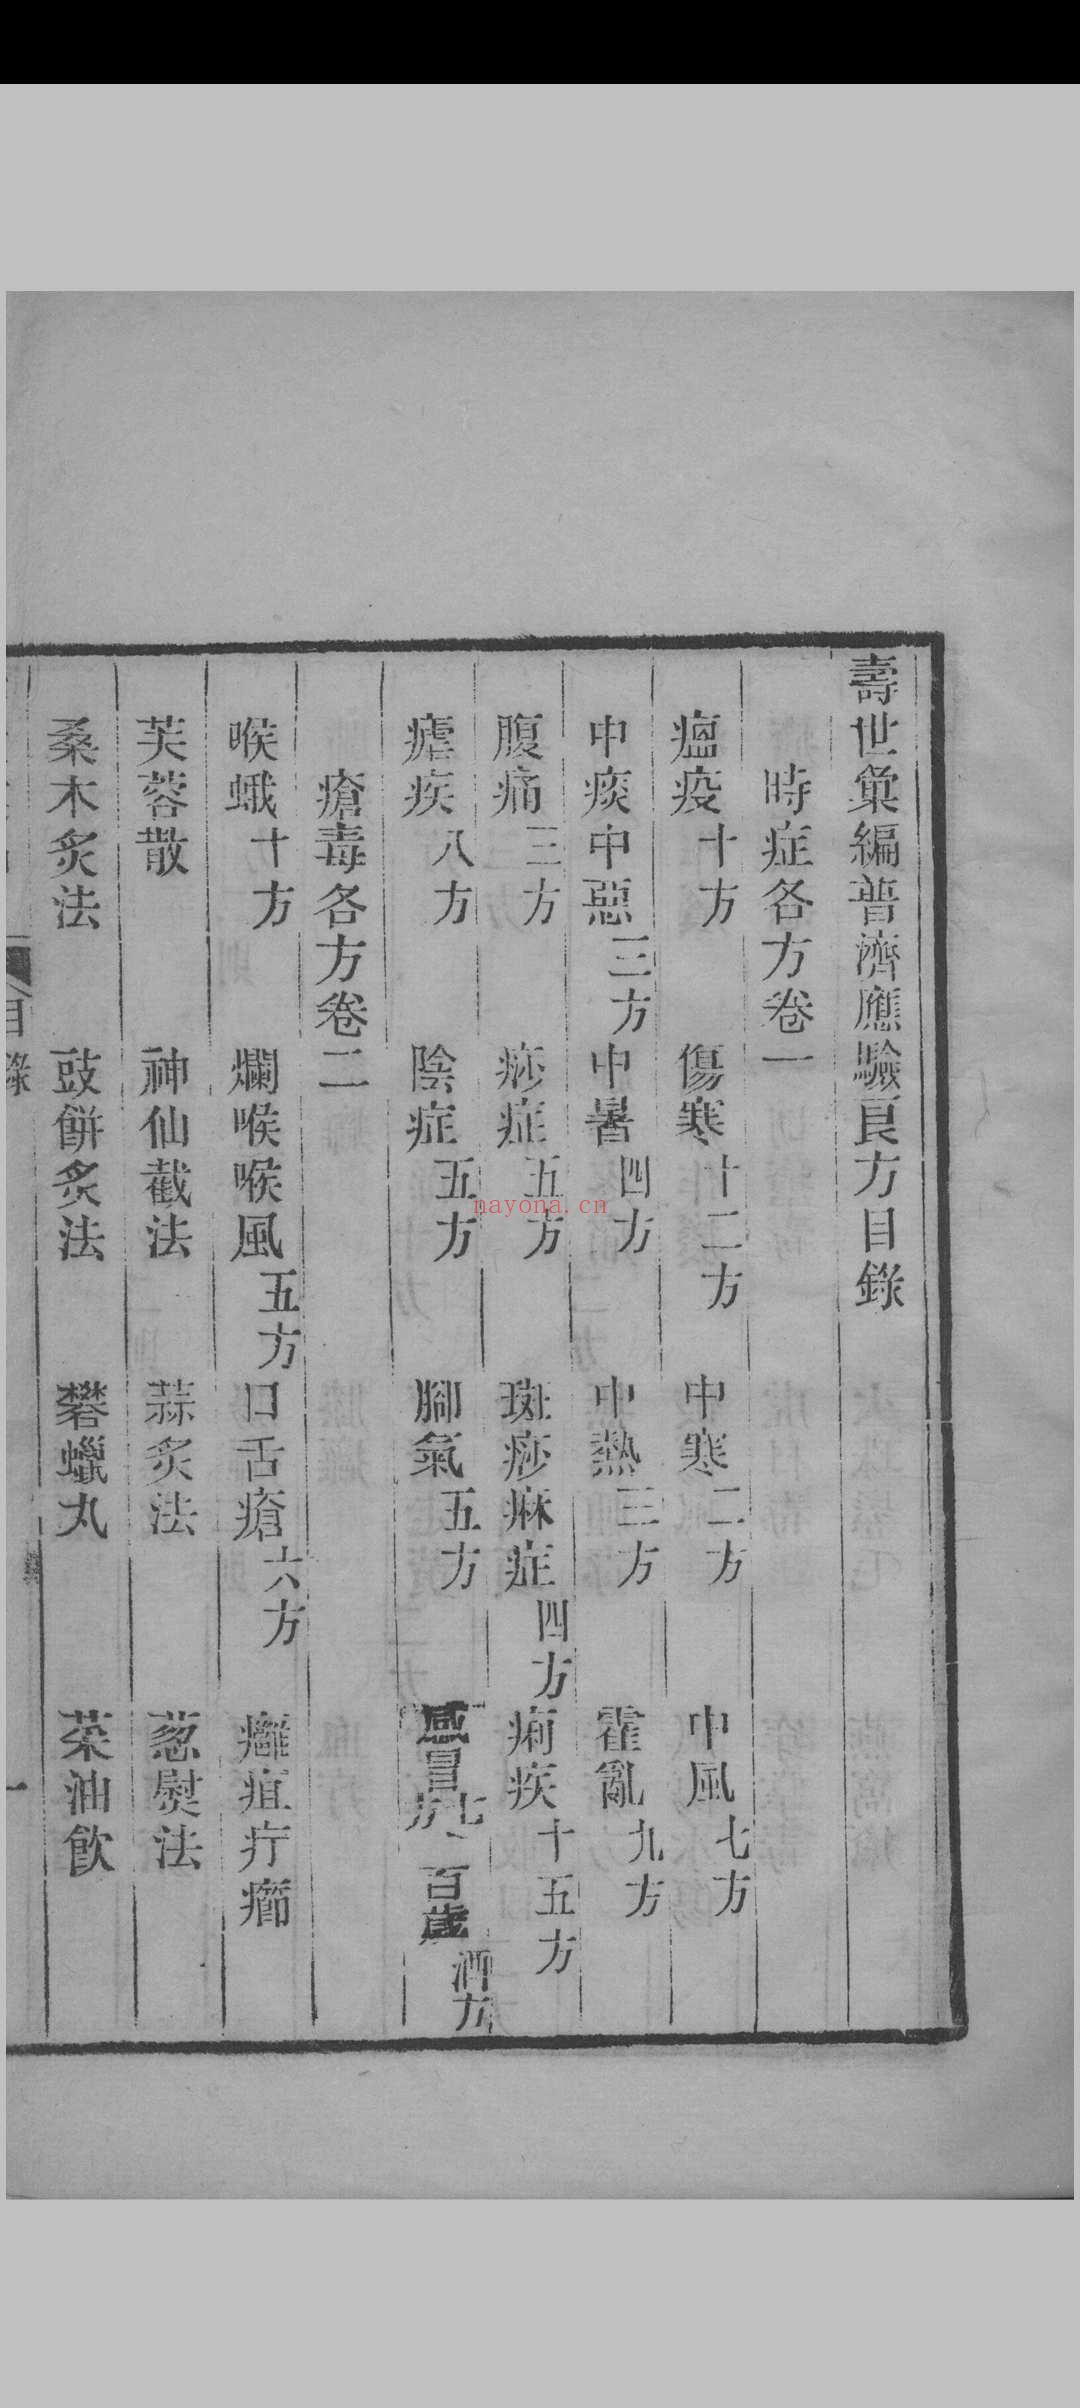 壽世彙編普濟應驗良方目錄
時症各方卷一
瘟疫十方 傷寒十二方 中寒二方 中風七方
中痰中惡三方 中暑四方 中熱三方 霍亂九方
腹痛三方 痧症五方 斑痧麻症四方 痢疾十五方
瘧疾八方 陰症五方 腳氣五方 感冒七方 百歲酒方
瘡毒各方卷二
喉蛾十方 爛喉喉風五方 口舌瘡六方 癰疽疔癤
芙蓉散 神仙截法 蒜炙法 葱熨法
桑木炙法 豉餅炙法 礬蠟丸 菜油飲
目錄 一
nayona.cn